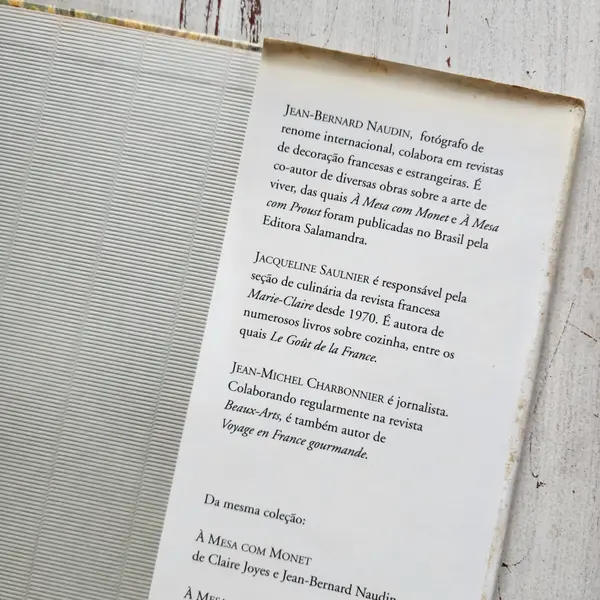 JEAN-BERNARD NAUDIN, fotógrafo de
renome internacional, colabora em revistas
de decoração francesas e estrangeiras. É
co-autor de diversas obras sobre a arte de
viver, das quais À Mesa com Monet e À Mesa
com Proust foram publicadas no Brasil pela
Editora Salamandra.
JACQUELINE SAULNIER é responsável pela
seção de culinária da revista francesa
Marie-Claire desde 1970. É autora de
numerosos livros sobre cozinha, entre os
quais Le Goût de la France.
JEAN-MICHEL CHARBONNIER é jornalista.
Colaborando regularmente na revista
Beaux-Arts, é também autor de
Voyage en France gourmande.
Da mesma coleção:
À MESA COM MONET
de Claire Joyes e Jean-Bernard Naudin
À MESA